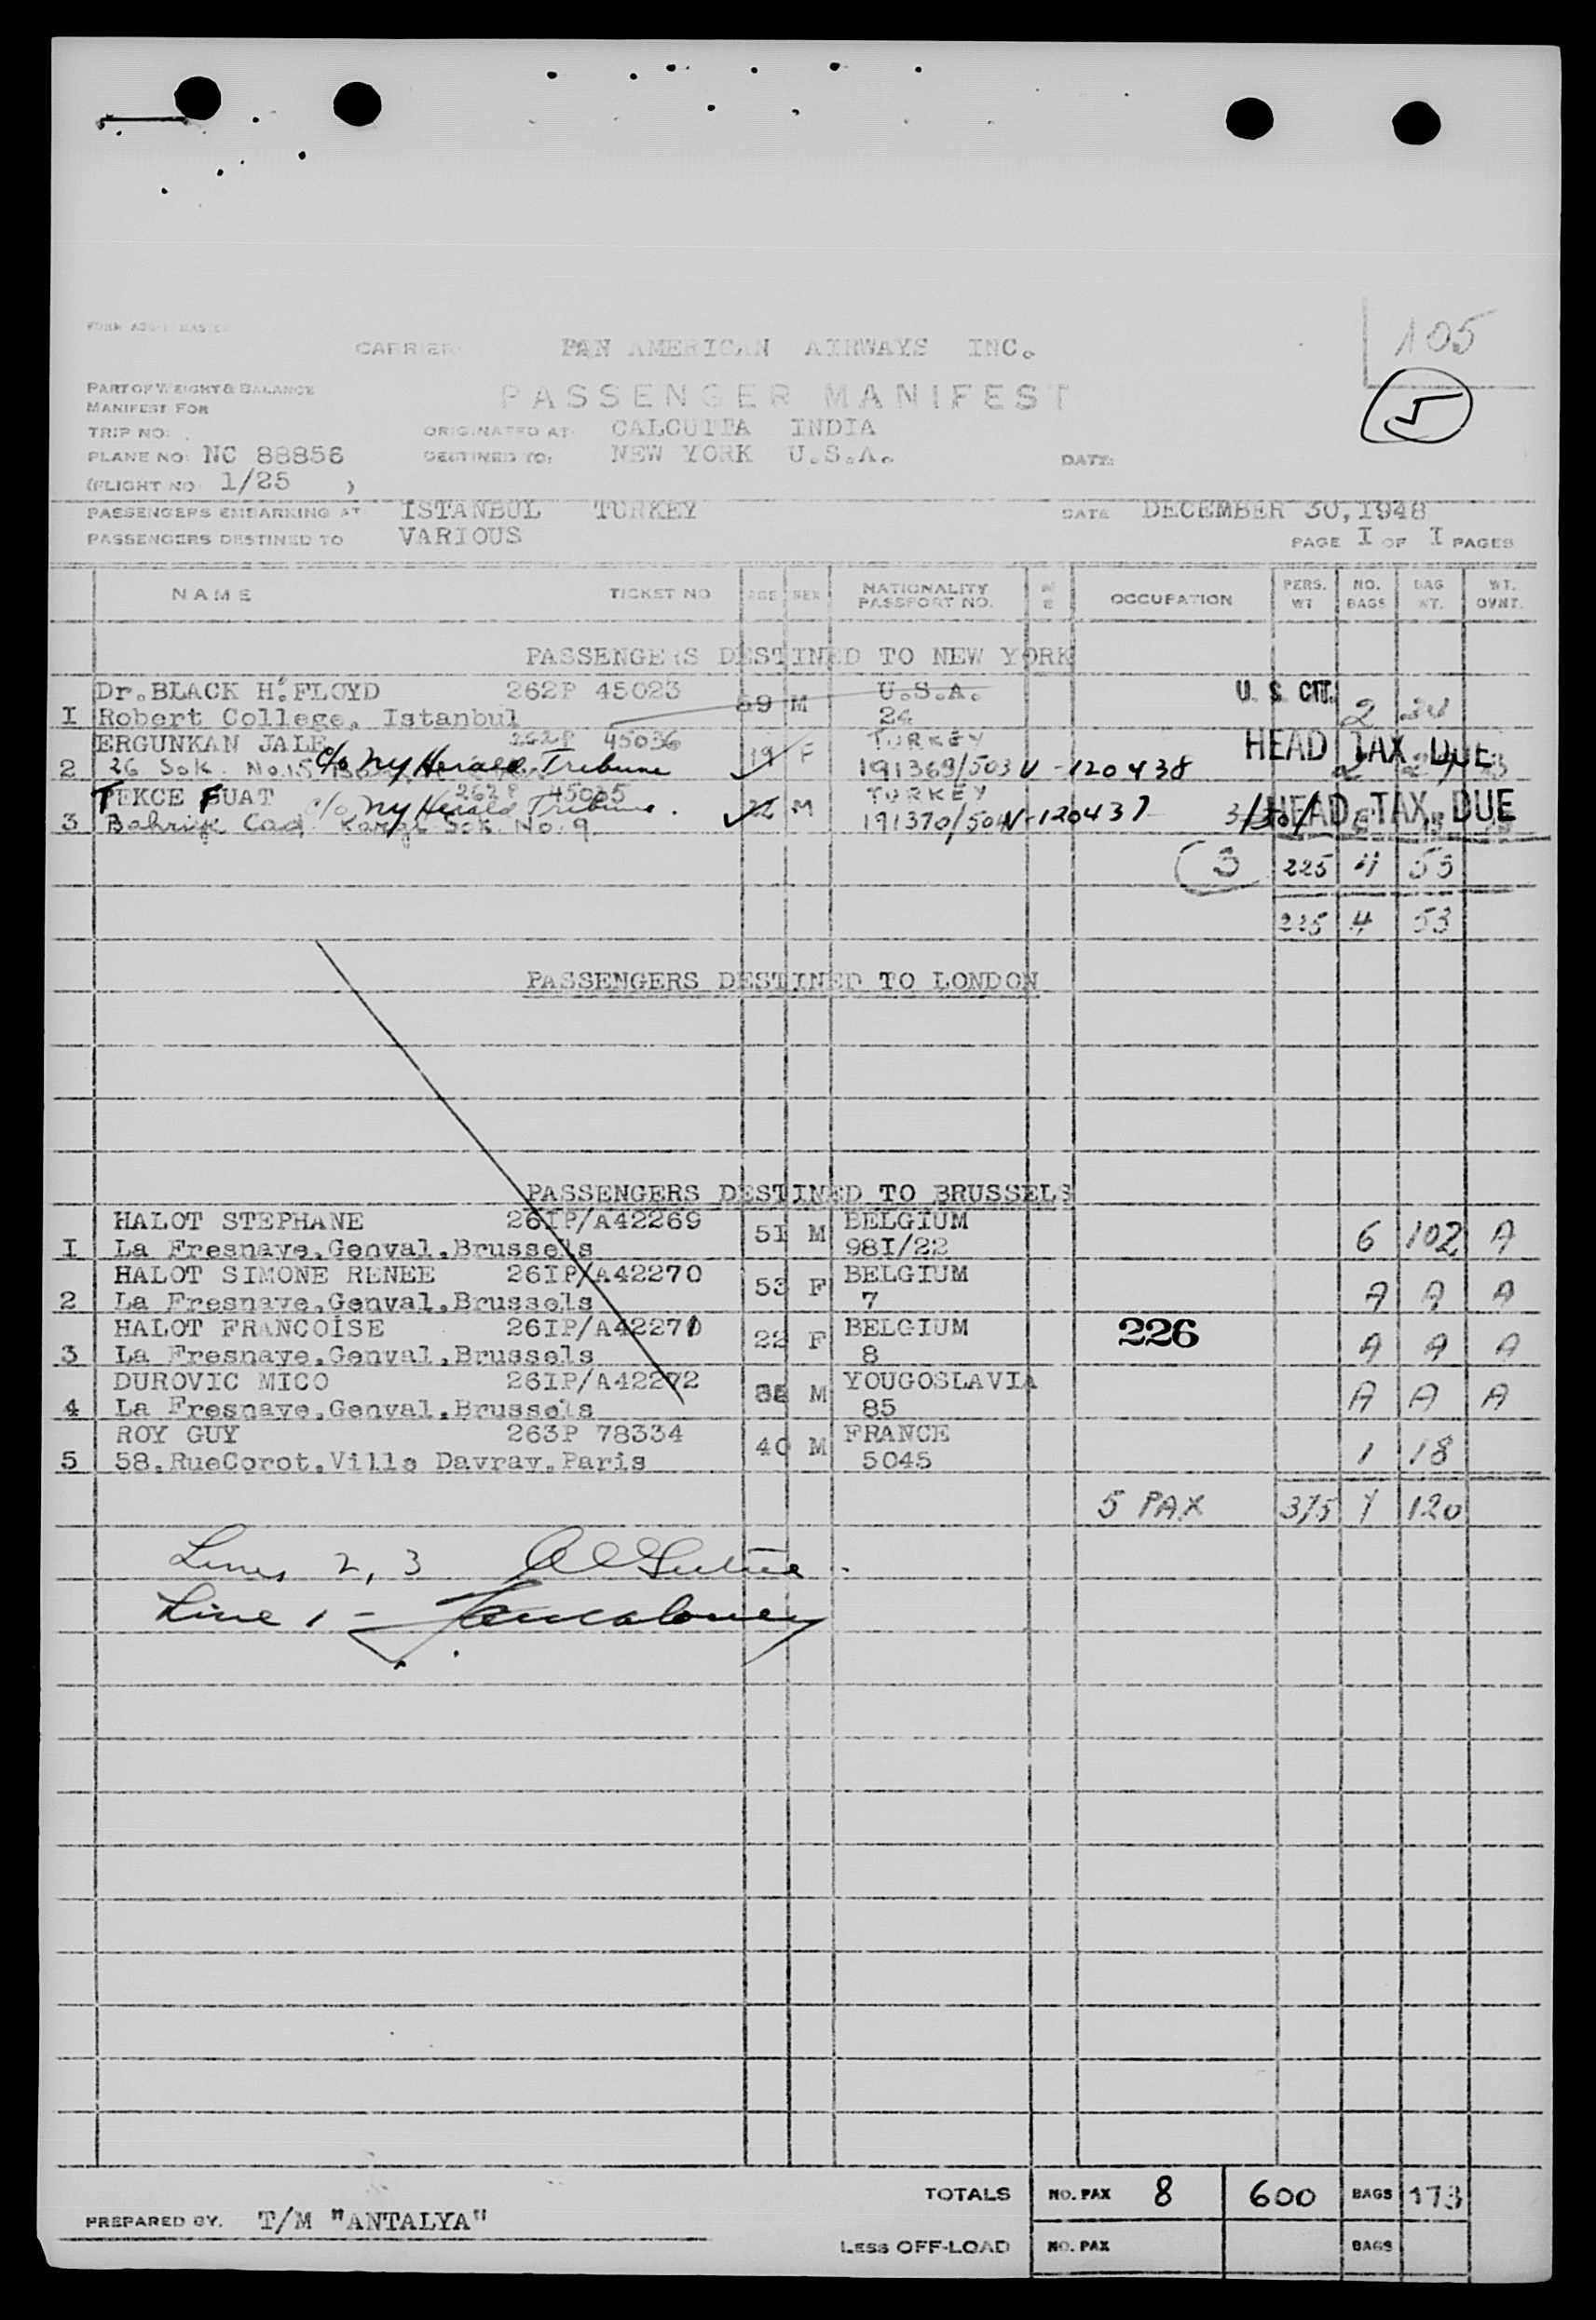 105
CARRIER PAN AMERICAN AIRWAYS INC.
5
PART OF WEIGHT & BALANCE
MANIFEST FOR
PASSENGER MANIFEST
TRIP NO: ORIGINATED AT CALCUTTA INDIA
PLANE NO: NC 88856 DESTINED TO: NEW YORK U.S.A. DATE:
(FLIGHT NO 1/25 )
PASSENGERS EMBARKING AT ISTANBUL TURKEY DATE DECEMBER 30,1948
PASSENGERS DESTINED TO VARIOUS PAGE I OF I PAGES
NAME TICKET NO AGE SEX NATIONALITY PASSPORT NO. OCCUPATION PERS. WT NO. BAGS BAG WT. WT. OVNT.
PASSENGERS DESTINED TO NEW YORK
Dr.BLACK H.FLOYD 262P 45023 59 M U.S.A. U. S. CIT.
I Robert College, Istanbul 24 2
ERGUNKAN JALE 262P 45036 19 F TURKEY HEAD TAX DUE
2 26 Sok. No.15 c/o NY Herald Tribune 191369/503 V-120438
TEKCE FUAT 262P 45035 M TURKEY HEAD TAX DUE
3 c/o NY Herald Tribune. Sok. No.9 191370/504 V-120437
3 225 4 53
225 4 53
PASSENGERS DESTINED TO LONDON
PASSENGERS DESTINED TO BRUSSELS
HALOT STEPHANE 26IP/A42269 5I M BELGIUM
I La Fresnaye,Genval,Brussels 98I/22 6 102 A
HALOT SIMONE RENEE 26IP/A42270 53 F BELGIUM
2 La Fresnaye,Genval,Brussels 7 A A A
HALOT FRANCOISE 26IP/A42271 22 F BELGIUM 226
3 La Fresnaye,Genval,Brussels 8 A A A
DUROVIC MICO 26IP/A42272 M YOUGOSLAVIA
4 La Fresnaye,Genval,Brussels 85 A A A
ROY GUY 263P 78334 40 M FRANCE
5 58,RueCorot,Ville Davray,Paris 5045 1 18
5 PAX 375 7 120
Lines 2, 3
Line 1 -
TOTALS NO. PAX 8 600 BAGS 173
PREPARED BY. T/M "ANTALYA"
LESS OFF-LOAD NO. PAX BAGS